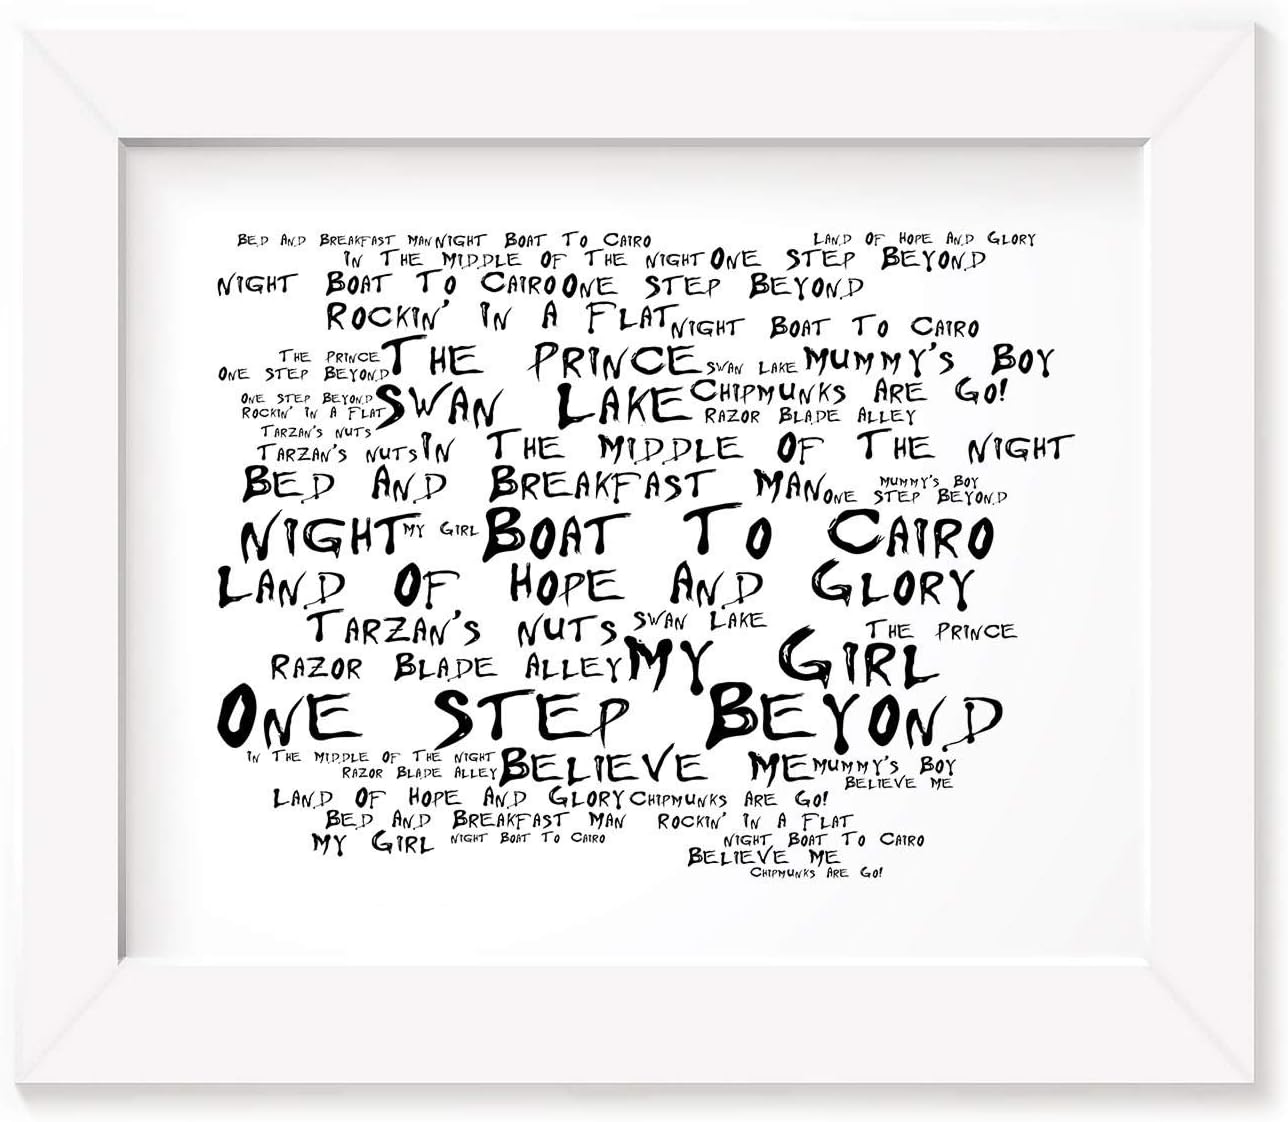 BED AND BREAKFAST MAN NIGHT BOAT TO CAIRO LAND OF HOPE AND GLORY
IN THE MIDDLE OF THE NIGHT ONE STEP BEYOND
NIGHT BOAT TO CAIRO ONE STEP BEYOND
ROCKIN' IN A FLAT NIGHT BOAT TO CAIRO
THE PRINCE THE PRINCE SWAN LAKE MUMMY'S BOY
ONE STEP BEYOND
ONE STEP BEYOND SWAN LAKE CHIPMUNKS ARE GO!
ROCKIN' IN A FLAT RAZOR BLADE ALLEY
TARZAN'S NUTS
TARZAN'S NUTS IN THE MIDDLE OF THE NIGHT
BED AND BREAKFAST MAN MUMMY'S BOY
ONE STEP BEYOND
NIGHT MY GIRL BOAT TO CAIRO
LAND OF HOPE AND GLORY
TARZAN'S NUTS SWAN LAKE THE PRINCE
RAZOR BLADE ALLEY MY GIRL
ONE STEP BEYOND
IN THE MIDDLE OF THE NIGHT BELIEVE ME MUMMY'S BOY
RAZOR BLADE ALLEY BELIEVE ME
LAND OF HOPE AND GLORY CHIPMUNKS ARE GO!
BED AND BREAKFAST MAN ROCKIN' IN A FLAT
MY GIRL NIGHT BOAT TO CAIRO NIGHT BOAT TO CAIRO
BELIEVE ME
CHIPMUNKS ARE GO!